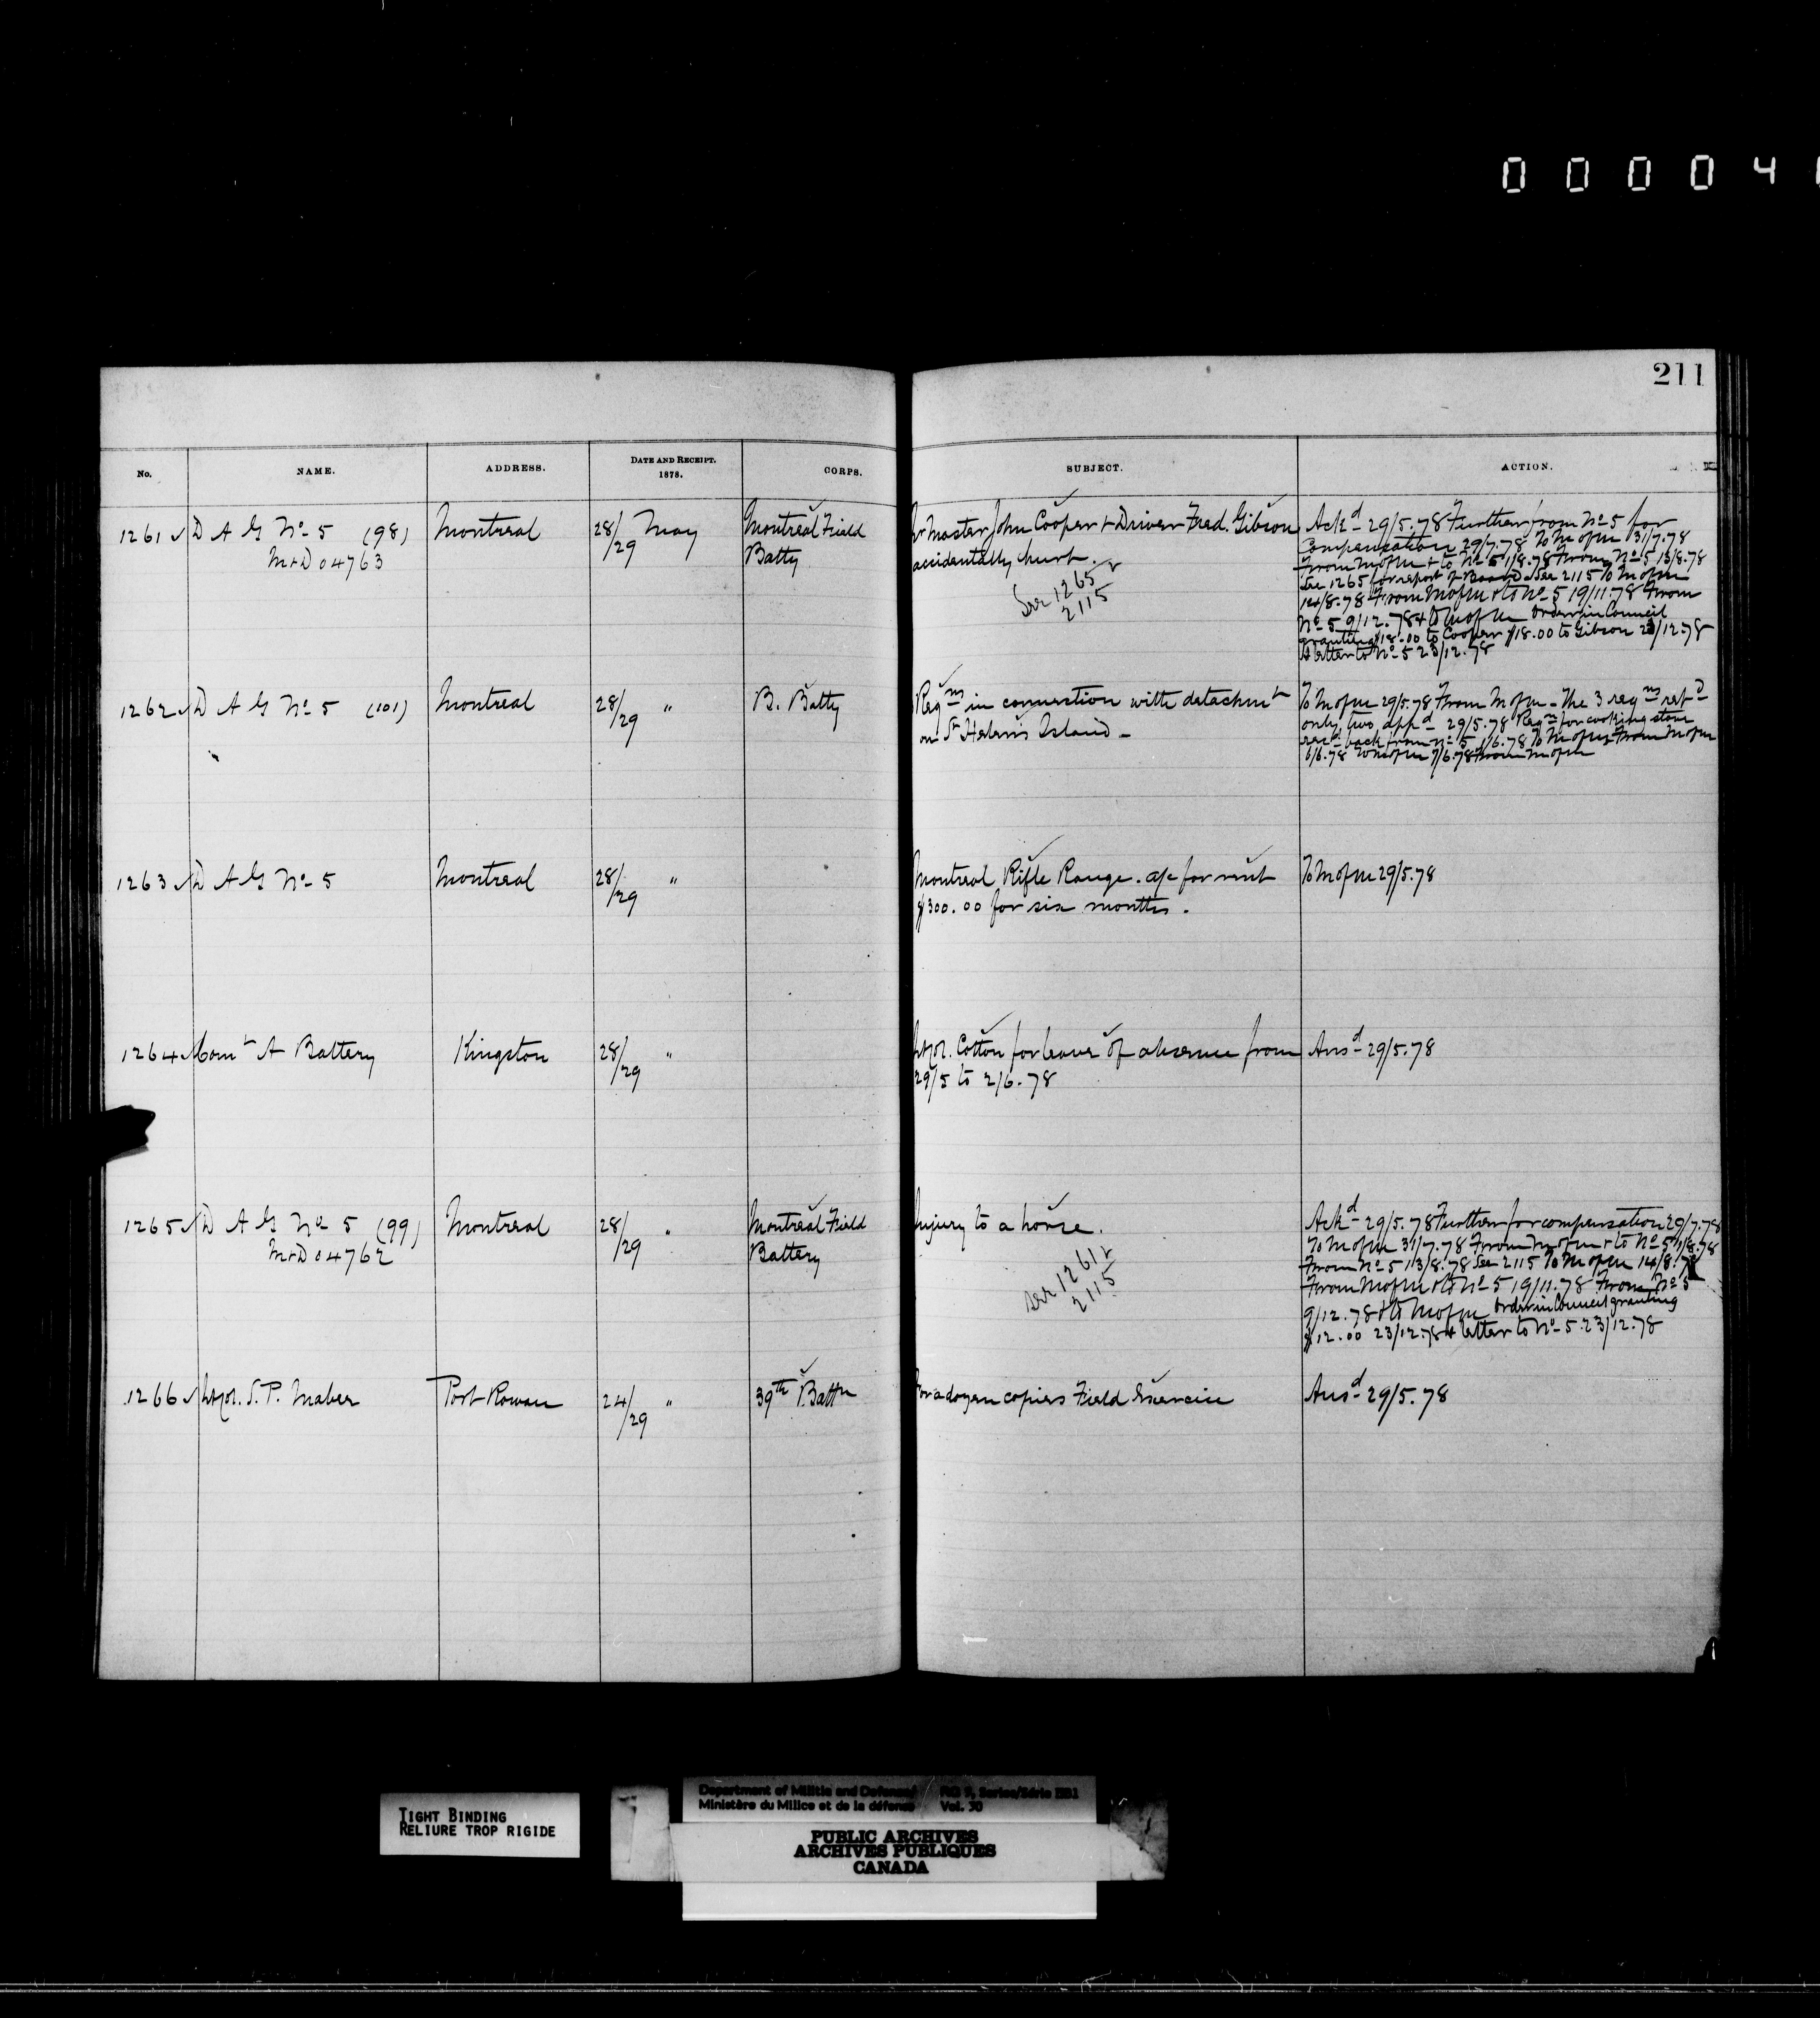 0 0 0 0 4
211
No. NAME. ADDRESS. DATE AND RECEIPT. 1878. CORPS. SUBJECT. ACTION.
1261 D A G No 5 (98) Montreal 28/29 May Montreal Field
M+D 04763 Batty
Master John Cooper + Driver Fred. Gibson
accidentally hurt.
See 1265 +
2115
Ackd 29/5.78 Further from No 5 for
Compensation 29/7.78 To M of M 31/7.78
From M of M + to No 5 1/8.78 From No 5 13/8.78
See 1265 for report of Board See 2115 To M of M
14/8.78 From M of M + to No 5 19/11.78 From
No 5 9/12.78 + to M of M Order in Council
granting $18.00 to Cooper $18.00 to Gibson 23/12.78
+ letter to No 5 23/12.78
1262 D A G No 5 (101) Montreal 28/29 " B. Batty
Reqns in connection with detachmt
on St Helen's Island -
To M of M 29/5.78 From M of M - The 3 reqns retd
only two appd 29/5.78 Reqn for cooking stove
recd back from No 5 1/6.78 To M of M From M of M
6/6.78 To M of M 7/6.78 From M of M
1263 D A G No 5 Montreal 28/29 "
Montreal Rifle Range. a/c for rent
$300.00 for six months.
To M of M 29/5.78
1264 Comt A Battery Kingston 28/29 "
Lt Col. Cotton for leave of absence from
29/5 to 2/6.78
Ansd 29/5.78
1265 D A G No 5 (99) Montreal 28/29 " Montreal Field
M+D 04762 Battery
Injury to a horse.
see 1261 +
2115
Ackd 29/5.78 Further for compensation 29/7.78
To M of M 31/7.78 From M of M + to No 5 1/8.78
From No 5 13/8.78 See 2115 To M of M 14/8.78
From M of M + to No 5 19/11.78 From No 5
9/12.78 + to M of M Order in Council granting
$12.00 23/12.78 + letter to No 5 23/12.78
1266 Lt Col. S. P. Mabee Port Rowan 24/29 " 39th Battn
For a dozen copies Field Exercise
Ansd 29/5.78
TIGHT BINDING
RELIURE TROP RIGIDE
Department of Militia and Defence/
Ministère du Milice et de la défense
RG 9, Series/Série IIB1
Vol. 30
PUBLIC ARCHIVES
ARCHIVES PUBLIQUES
CANADA